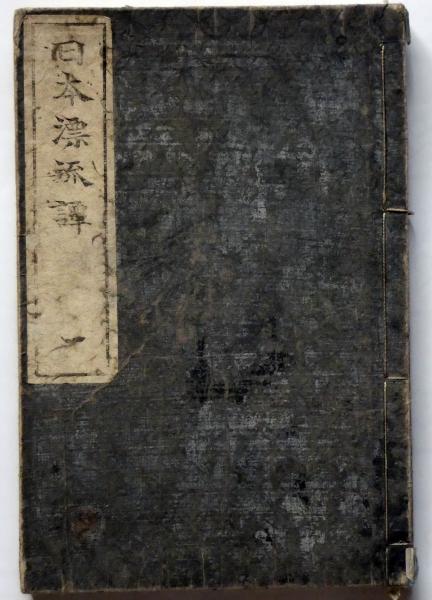 日本漂流譚